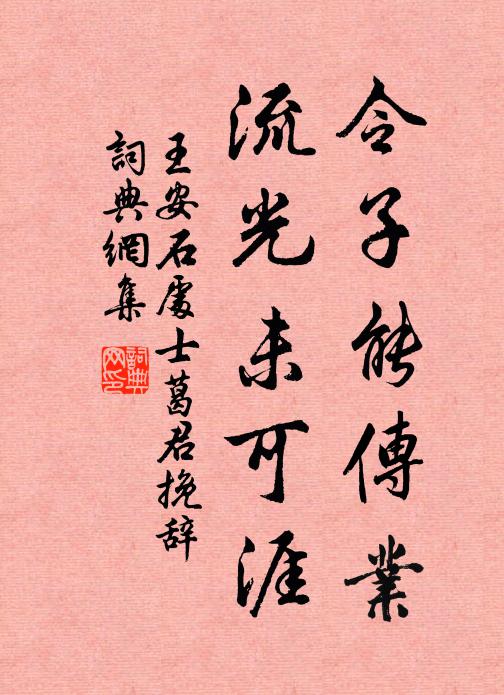 令子能傳業
流光未可涯
王安石處士葛君挽辞
詞典網集
詞典網印